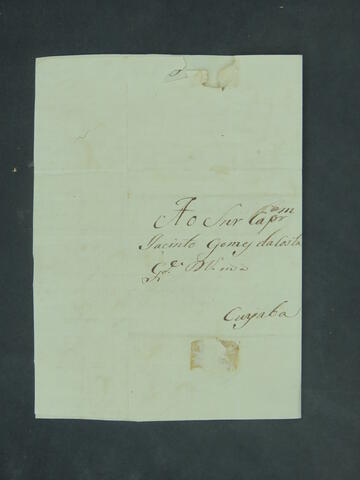 Ao Snr Capm
Jacinto Gomes da Costa
Gde
Cuyaba